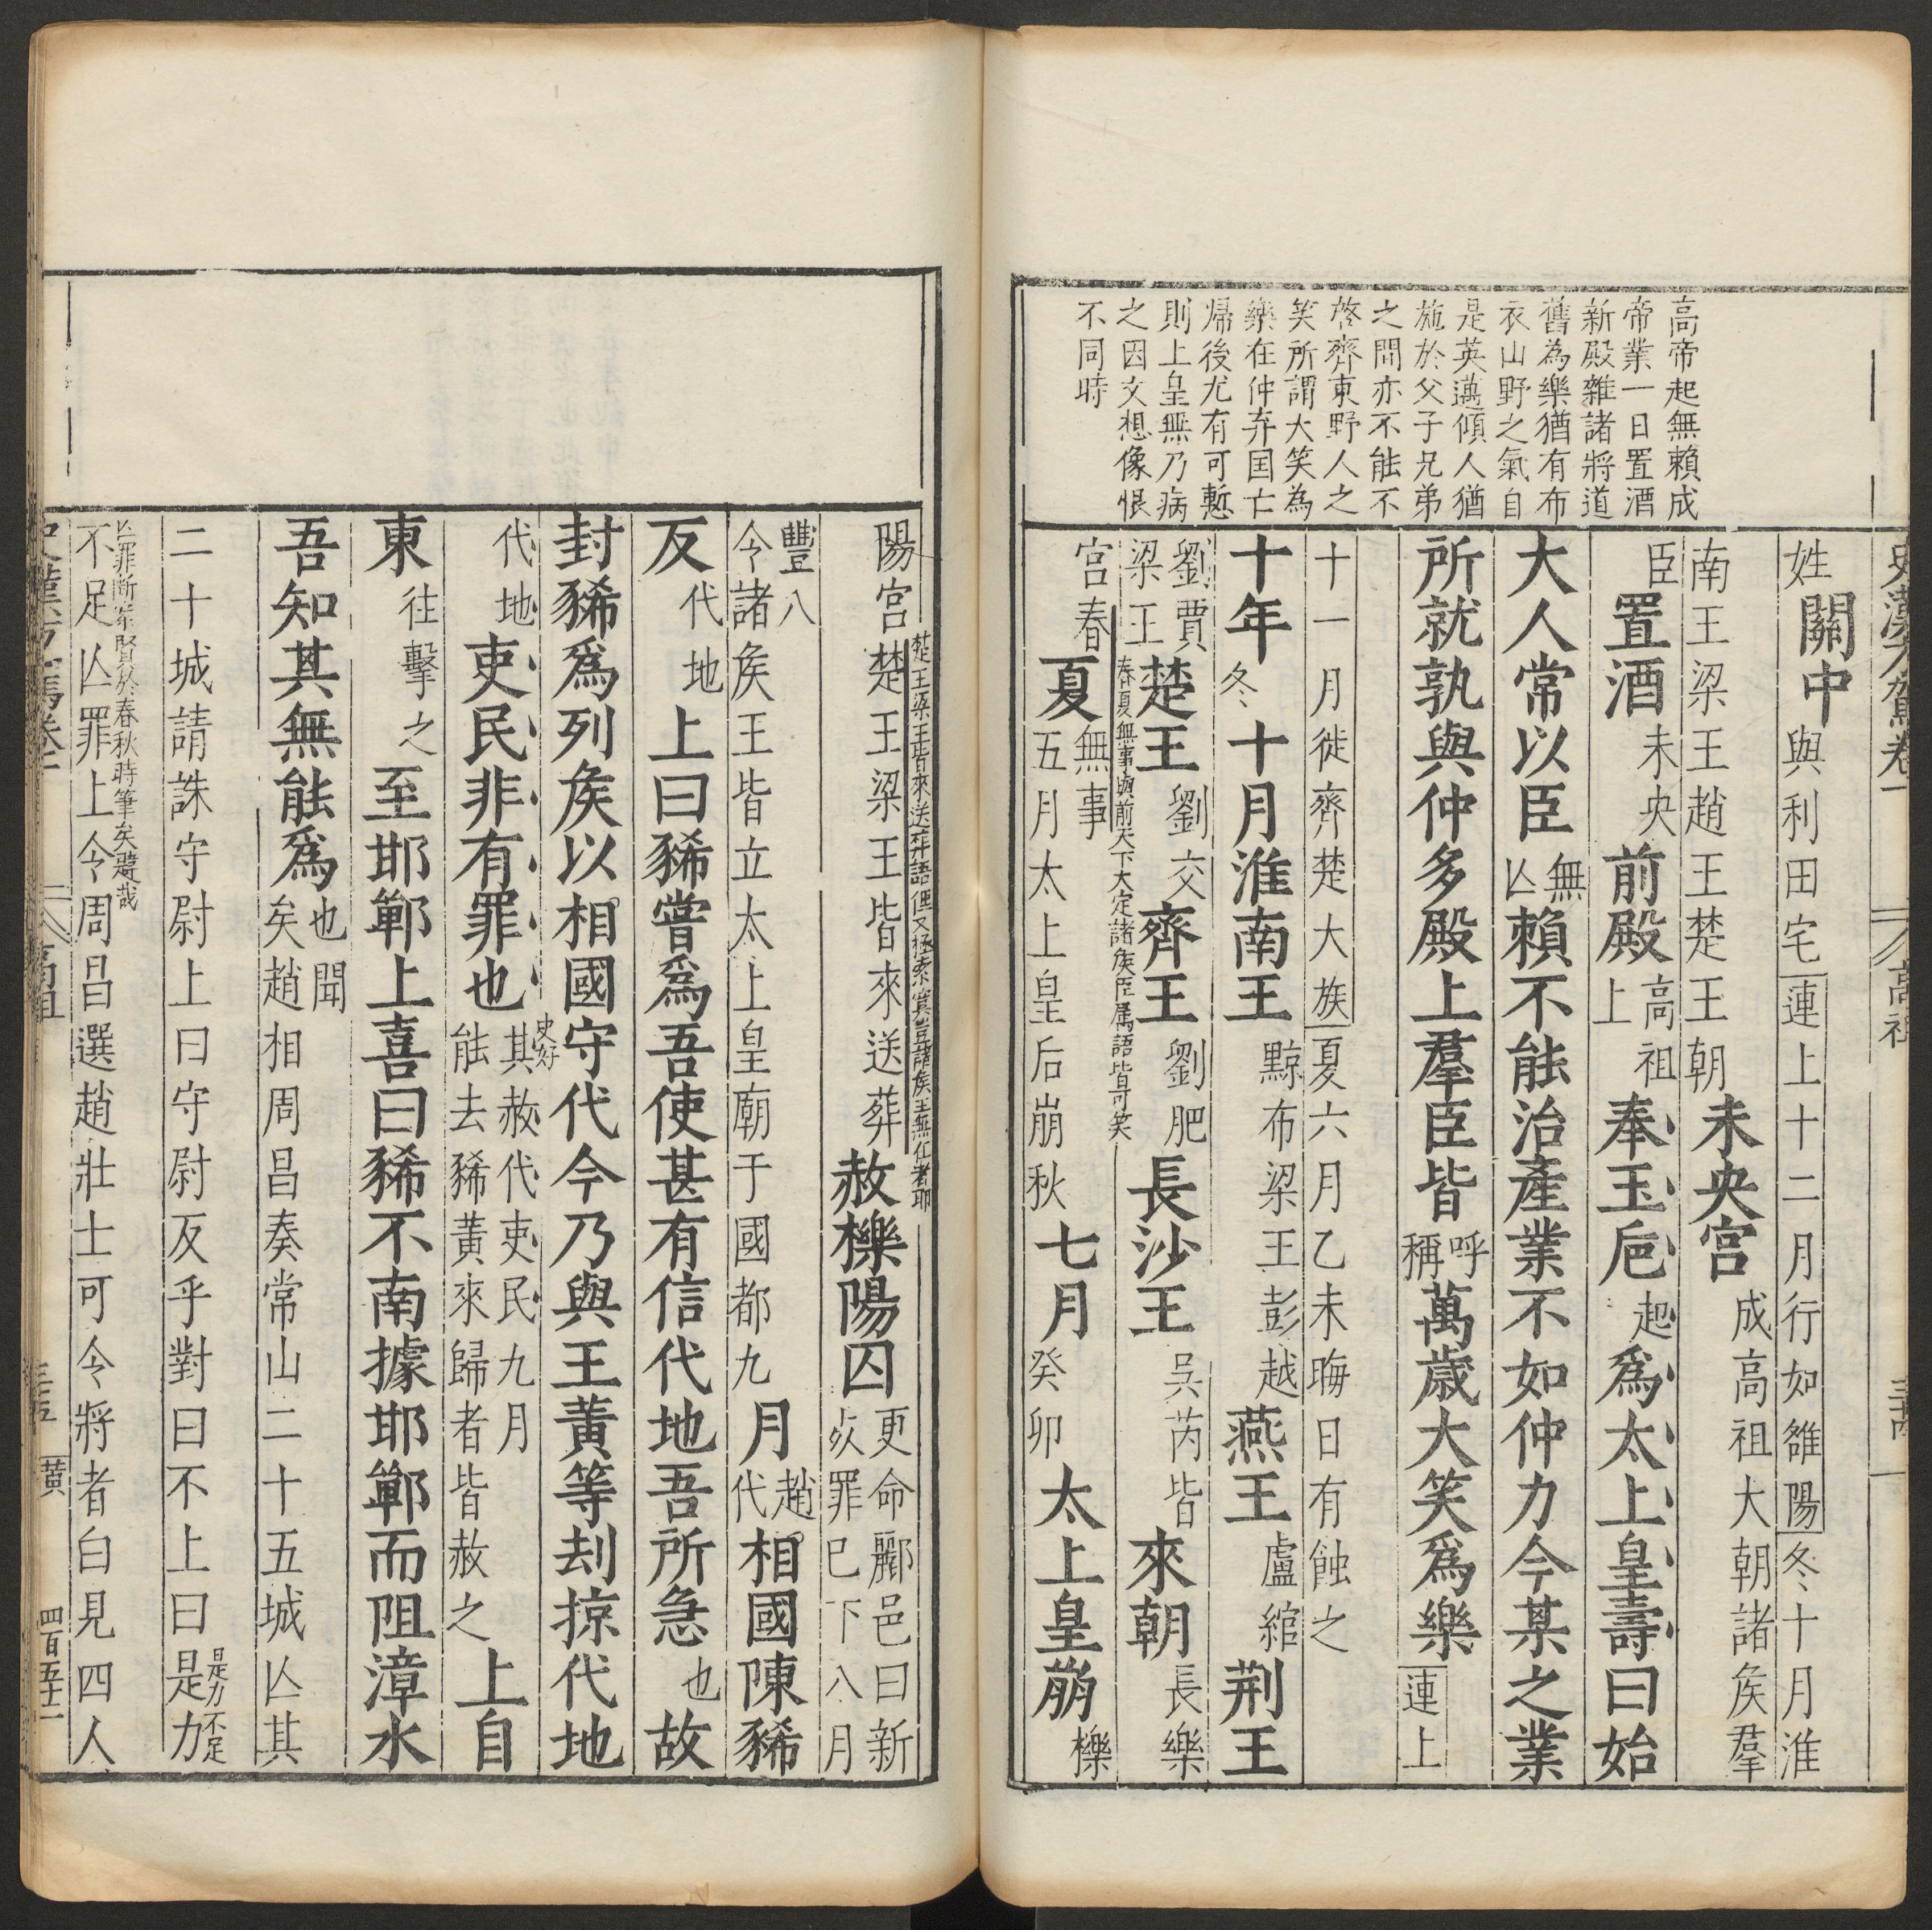 史漢方駕卷一 高祖 三十四
高帝起無賴成
帝業一日置酒
新殿雜諸將道
舊為樂猶有布
衣山野之氣自
是英邁傾人猶
施於父子兄弟
之間亦不能不
啓齊東野人之
笑所謂大笑為
樂在仲弃国亡
帰後尤有可慙
則上皇無乃病
之因文想像恨
不同時
姓關中與利田宅連上十二月行如雒陽冬十月淮
南王梁王趙王楚王朝未央宮成高祖大朝諸矦羣
臣置酒未央前殿高祖上奉玉巵起爲太上皇壽曰始
大人常以臣無亾賴不能治產業不如仲力今某之業
所就孰與仲多殿上羣臣皆呼稱萬歲大笑爲樂連上
十一月徙齊楚大族夏六月乙未晦日有蝕之
十年冬十月淮南王黥布梁王彭越燕王盧綰荆王
劉賈梁王楚王劉交齊王劉肥長沙王吳芮皆來朝長樂
春夏無事與前天下大定諸矦臣属語皆可笑
宮春夏無事五月太上皇后崩秋七月癸卯太上皇崩櫟
楚王梁王皆來送葬語俚又極索寞豈諸矦王無在者耶
陽宮楚王梁王皆來送葬赦櫟陽囚更命酈邑曰新死罪已下八月
豐八令諸矦王皆立太上皇廟于國都九月趙代相國陳豨
反代地上曰豨嘗爲吾使甚有信代地吾所急也故
封豨爲列矦以相國守代今乃與王黃等刦掠代地
史好
代地吏民非有罪也其赦代吏民九月能去豨黃來歸者皆赦之上自
東往擊之至邯鄲上喜曰豨不南據邯鄲而阻漳水
吾知其無能爲也聞矣趙相周昌奏常山二十五城亾其
二十城請誅守尉上曰守尉反乎對曰不上曰是力
是力不足
亾罪斷案賢於春秋時筆矣哉
不足亾罪上令周昌選趙壯士可令將者白見四人
史漢方駕卷一 高祖 三十五 黃 四百五十二